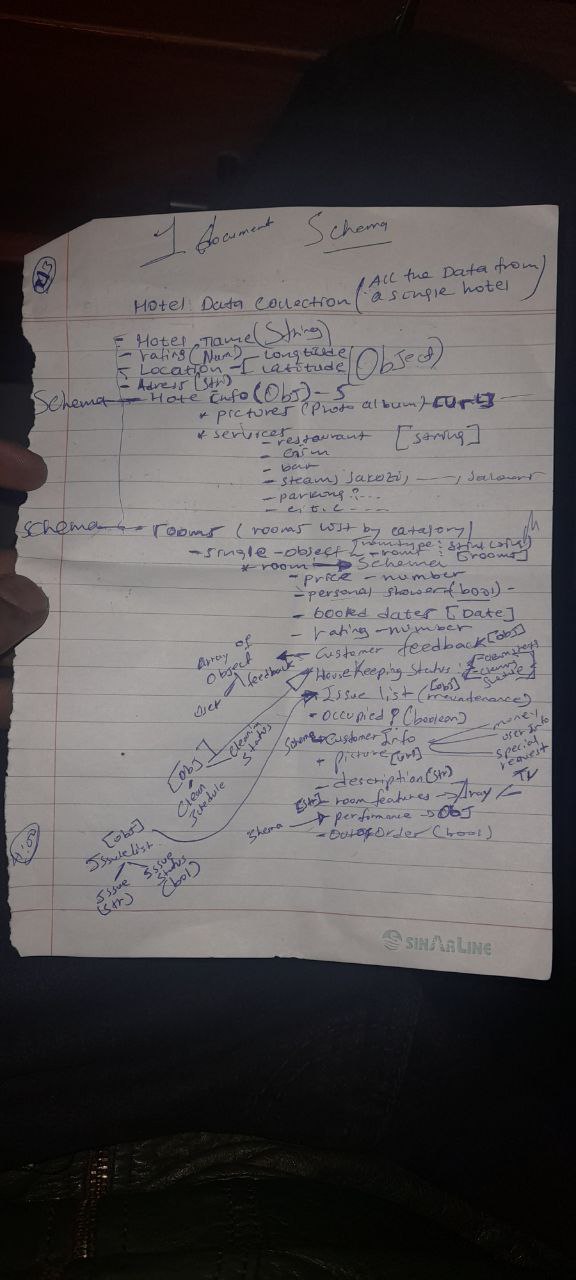 1 document Schema
Hotel Data Collection (All the Data from a single hotel)
- Hotel name (String)
- rating (Num)
- Location - longitude
latitude (Object)
- Adress (str)
Schema Hote info (Obj) - 5
* pictures (Photo album) [url]
* services
- restaurant [string]
- Gim
- bar
- steam, Jakozi,
- parking ? ...
Schema rooms (rooms list by catagory)
- single - object
* room Schema [rooms]
- price - number
- personal shower (bool) -
- booked dates [Date]
- rating - number
- Customer feedback [obj]
Array of Object
User feedback
House Keeping Status :
- Issue list [obj] (maintenance)
- Occupied ? (boolean)
Schema Customer Info
money
user Info
special request
+ picture [url]
- description (str)
[str] - room features - Array
TV
Shema performance → Obj
- Out of Order (bool)
[Obj]
Cleaning Status
Clean
[obj]
Issue list
Issue (str)
Issue Status (bol)
SINARLINE